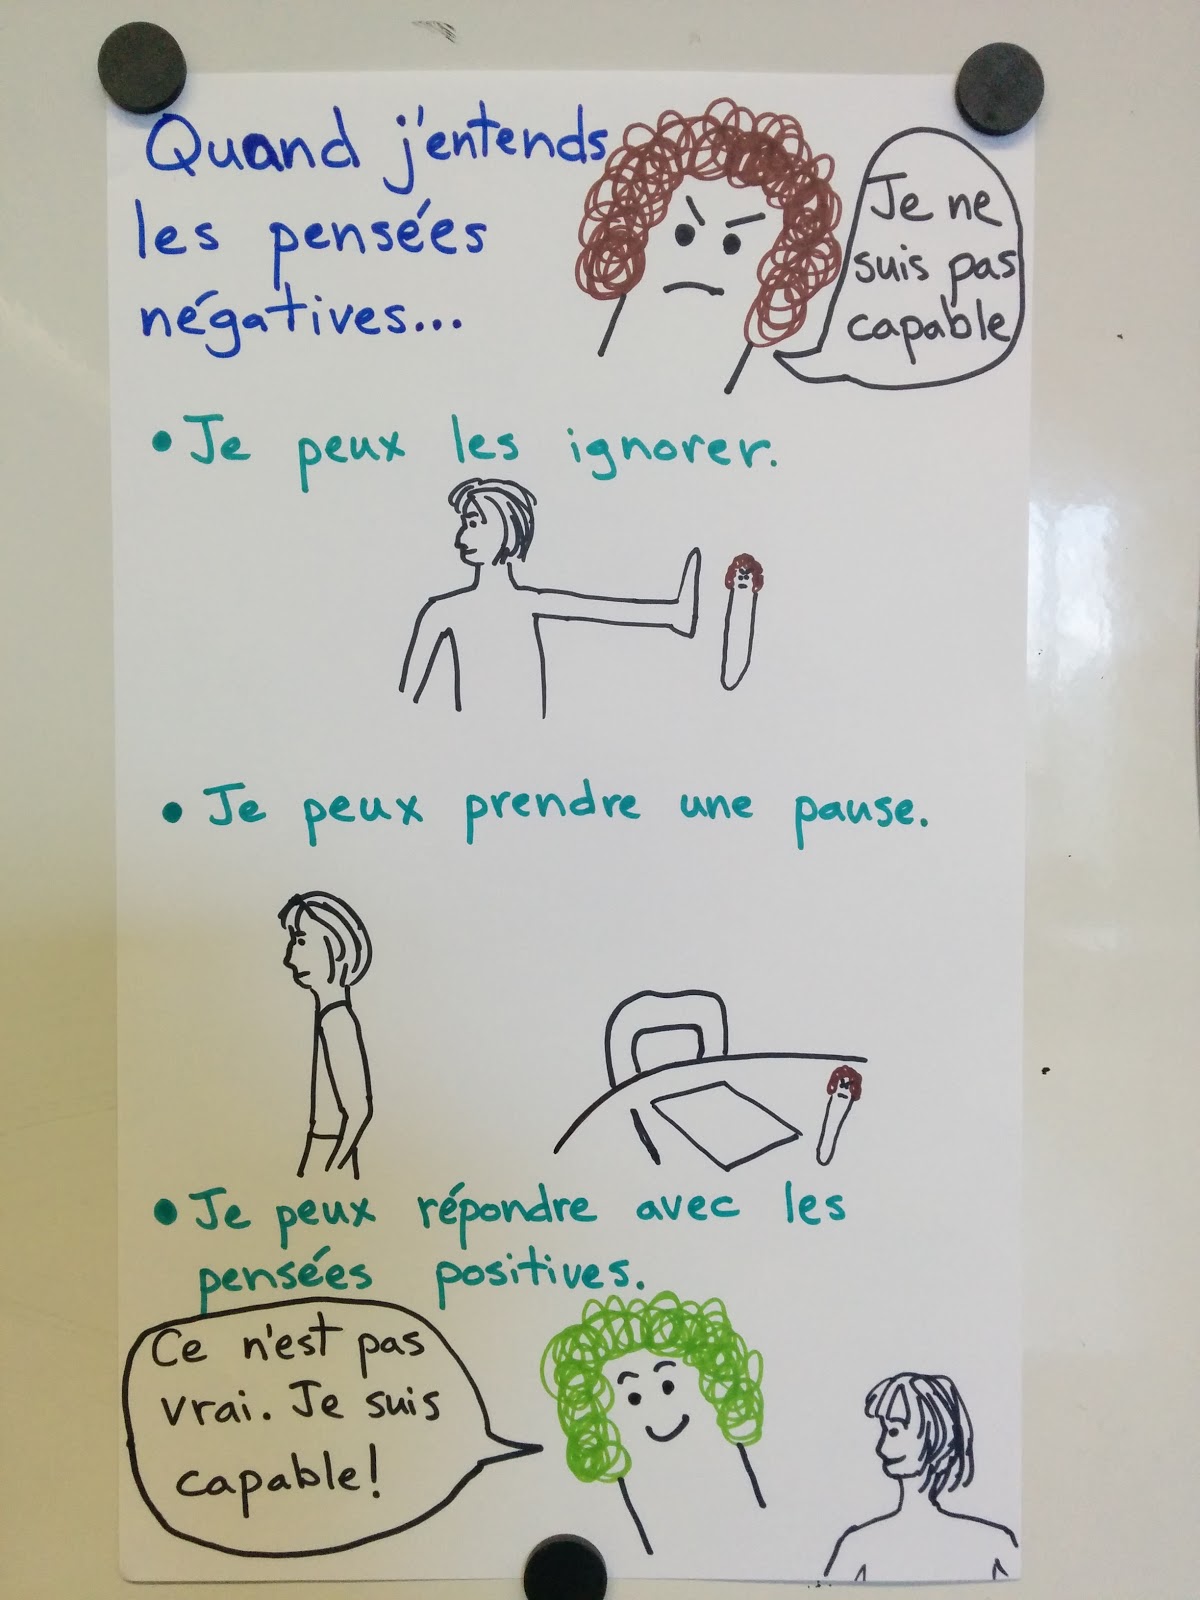 Quand j'entends
les pensées
négatives...
Je ne
suis pas
capable
• Je peux les ignorer.
• Je peux prendre une pause.
• Je peux répondre avec les
pensées positives.
Ce n'est pas
vrai. Je suis
capable!